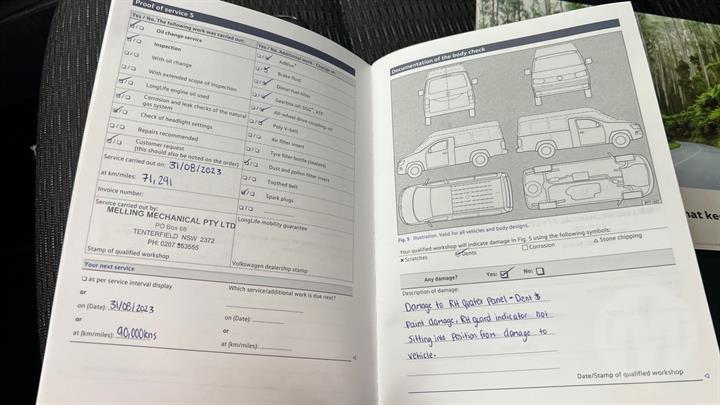 Proof of service 5
Yes / No, The following work was carried out:
Oil change service
Inspection
With oil change
With extended scope of inspection
LongLife engine oil used
Corrosion and leak checks of the natural
gas system
Check of headlight settings
Repairs recommended
Customer request
(this should also be noted on the order)
Service carried out on: 31/08/2023
at km/miles: 71,291
Invoice number:
Service carried out by:
MELLING MECHANICAL PTY LTD
PO Box 68
TENTERFIELD NSW 2372
PH: 0267 363555
Stamp of qualified workshop
Yes / No, Additional work - Change of:
AdBlue®
Brake fluid
Diesel fuel filter
Gearbox oil: DSG®, ATF
All-wheel drive coupling: oil
Poly V-belt
Air filter insert
Tyre filler bottle (sealant)
Dust and pollen filter insert
Toothed belt
Spark plugs
LongLife mobility guarantee
Volkswagen dealership stamp
Your next service
as per service interval display
or
on (Date): 31/08/2023
or
at (km/miles): 90,000kms
Which service/additional work is due next?
or
on (Date):
or
at (km/miles):
Documentation of the body check
Fig. 5 Illustration. Valid for all vehicles and body designs.
Your qualified workshop will indicate damage in Fig. 5 using the following symbols:
× Scratches
Dents
□ Corrosion
△ Stone chipping
Any damage? Yes: No:
Description of damage:
Damage to RH Quater Panel - Dent $
Paint damage, RH guard indicator not
Sitting into Position from damage to
vehicle.
Date/Stamp of qualified workshop
hat ke